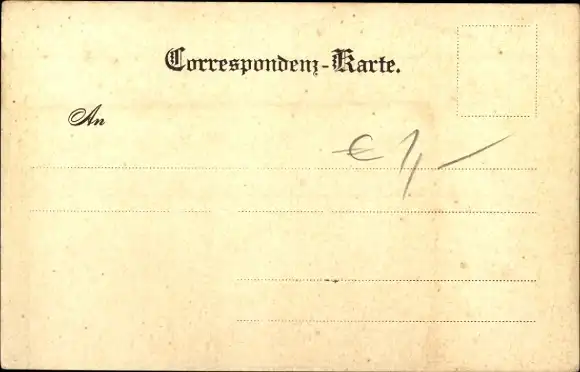 Correspondenz-Karte.
An
€ 1,-